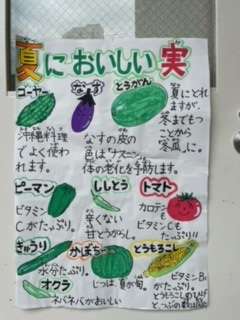 夏においしい実
ゴーヤー
沖縄料理
でよく使わ
れます。
なす
なすの皮の
色は"ナスニン"
体の老化を予防します。
とうがん
夏にとれ
ますが、
冬までもつ
ことから
「冬瓜」に。
ピーマン
ビタミン
Cがたっぷり。
ししとう
辛くない
甘とうがらし。
トマト
カロテン
も
ビタミンCも
たっぷり!!
きゅうり
水分たっぷり。
オクラ
ネバネバがおいしい
かぼちゃ
じつは、夏が旬。
とうもろこし
ビタミンB₁
がたっぷり。
とうもろこしのひげ
とつぶの数は同じ